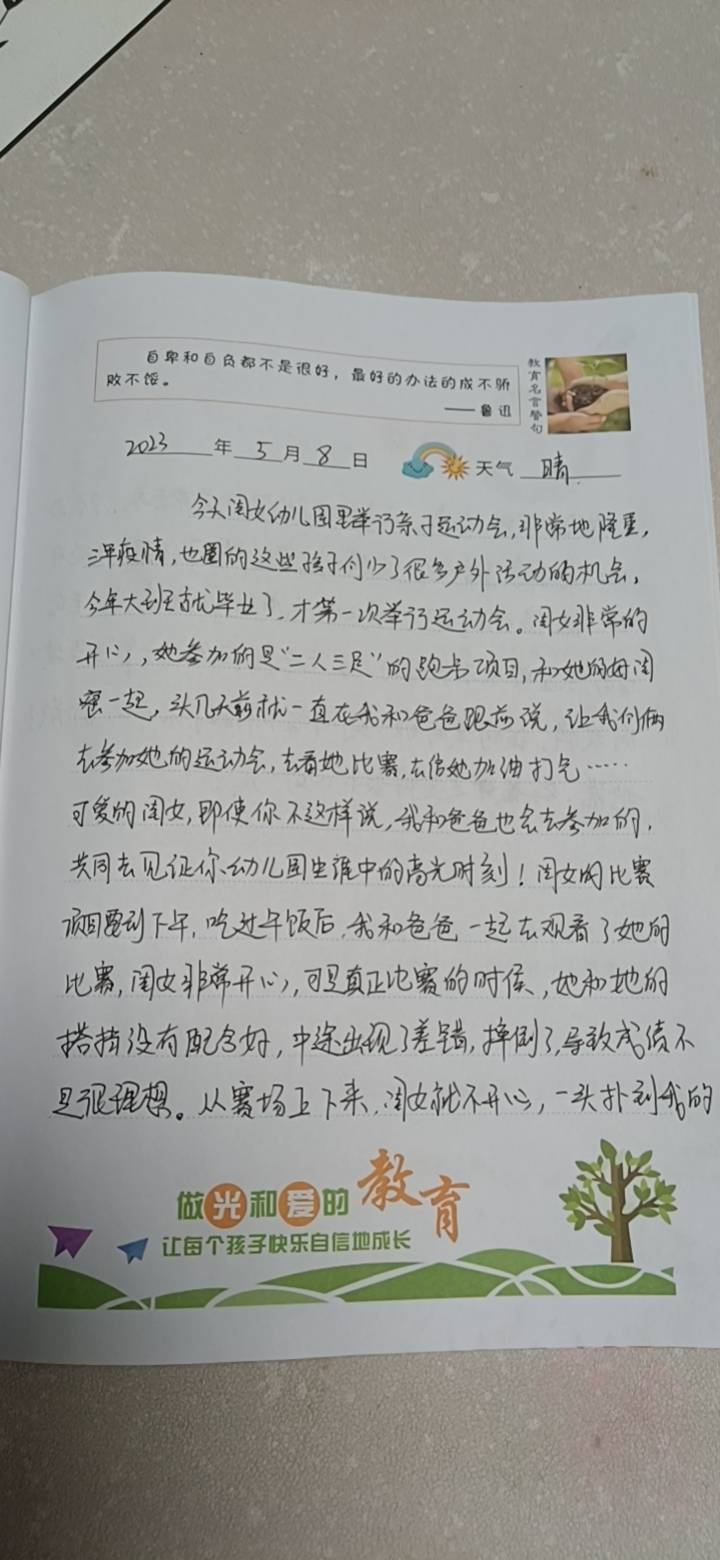 自卑和自负都不是很好，最好的办法的成不骄
败不馁。
——鲁迅
教育名言警句
2023年5月8日 天气 晴
今天闺女幼儿园里举行亲子运动会,非常地隆重,
三年疫情,也圈的这些孩子们少了很多户外活动的机会,
今年大班了就毕业了,才第一次举行运动会。闺女非常的
开心,她参加的是“二人三足”的跑步项目,和她的好闺
蜜一起,头几天前就一直在我和爸爸跟前说,让我们俩
去参加她的运动会,去看她比赛,去给她加油打气……
可爱的闺女,即使你不这样说,我和爸爸也会去参加的,
共同去见证你幼儿园生涯中的高光时刻!闺女的比赛
项目要到下午,吃过午饭后,我和爸爸一起去观看了她的
比赛,闺女非常开心,可是真正比赛的时候,她和她的
搭档没有配合好,中途出现了差错,摔倒了,导致成绩不
是很理想。从赛场上下来,闺女就不开心,一头扑到我的
做光和爱的教育
让每个孩子快乐自信地成长